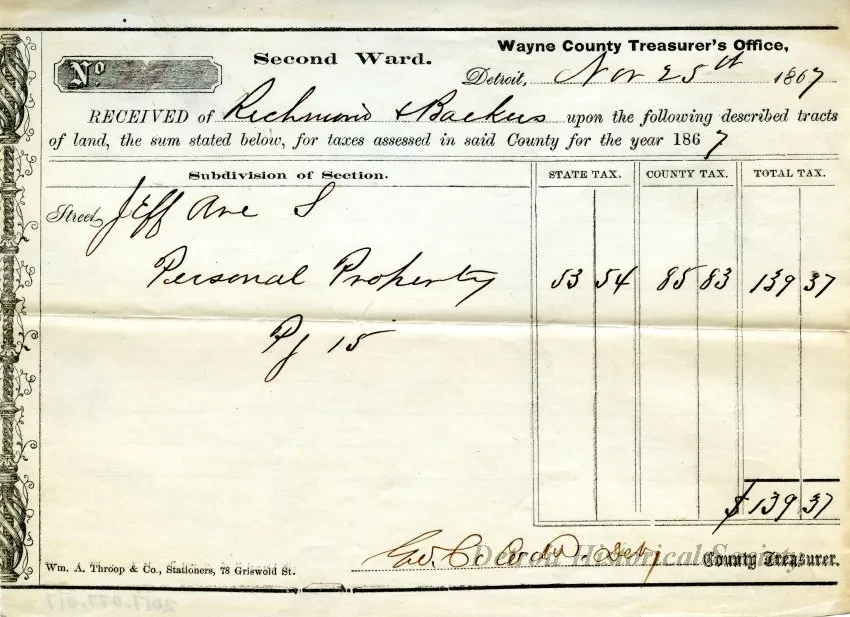 Wayne County Treasurer's Office,
Nº Second Ward. Detroit, Nov 25th 1867
RECEIVED of Richmond & Backus upon the following described tracts
of land, the sum stated below, for taxes assessed in said County for the year 1867
Subdivision of Section. STATE TAX. COUNTY TAX. TOTAL TAX.
Street, Jeff Ave S
Personal Property 53 54 85 83 139 37
Pg 15
$139 37
Detroit Historical Society
Geo. C. Depy County Treasurer.
Wm. A. Throop & Co., Stationers, 78 Griswold St.